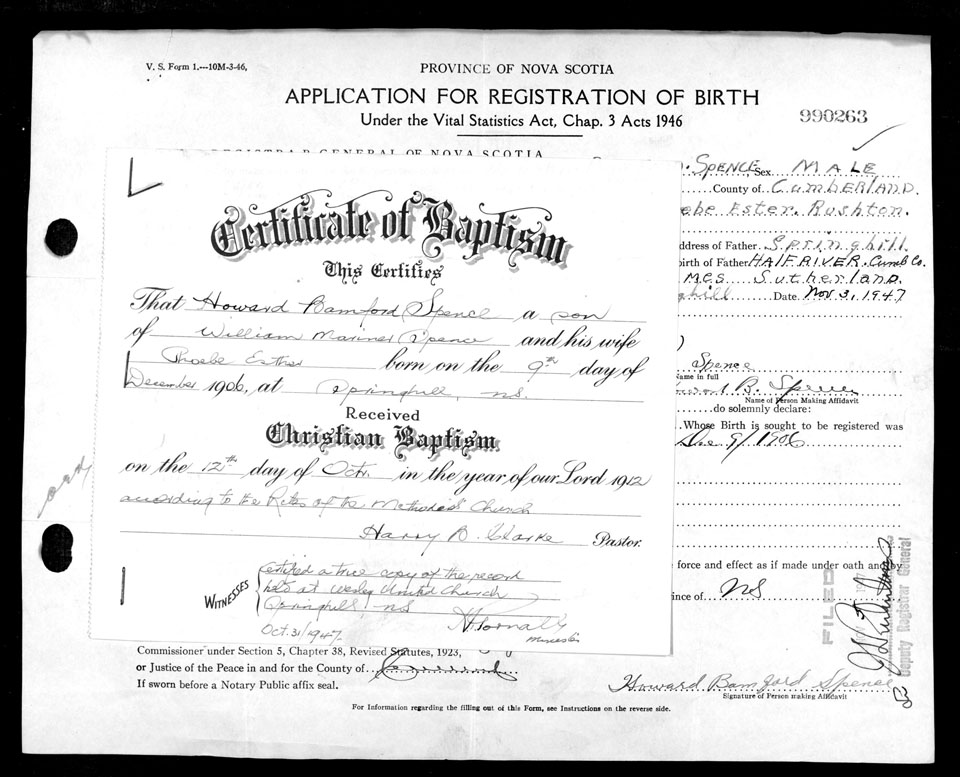 V. S. Form 1.---10M-3-46,
PROVINCE OF NOVA SCOTIA
APPLICATION FOR REGISTRATION OF BIRTH
Under the Vital Statistics Act, Chap. 3 Acts 1946
990263
REGISTRAR GENERAL OF NOVA SCOTIA
SPENCE Sex MALE
County of CUMBERLAND.
ebe Ester. Rushton.
ddress of Father Springhill
irth of Father HALF RIVER. Cumb Co.
mes Sutherland.
ghill Date Nov 3, 1947
Certificate of Baptism
This Certifies
That Howard Bamford Spence a son
of William Mariner Spence and his wife
Phoebe Esther born on the 9th day of
December 1906, at Springhill, NS.
Received
Christian Baptism
on the 12th day of Oct. in the year of our Lord 1912
according to the Rites of the Methodist Church
Harry B. Clarke Pastor.
WITNESSES
Certified a true copy of the record
held at Wesley United Church
Springhill, NS
Oct. 31/1947.
Minister
Spence
Name in full
B. Spence
Name of Person Making Affidavit
do solemnly declare:
Whose Birth is sought to be registered was
Dec 9/1906
force and effect as if made under oath and by
nce of NS
FILED
Deputy Registrar General
Commissioner under Section 5, Chapter 38, Revised Statutes, 1923,
or Justice of the Peace in and for the County of
If sworn before a Notary Public affix seal.
Howard Bamford Spence
Signature of Person making Affidavit
For Information regarding the filling out of this Form, see Instructions on the reverse side.